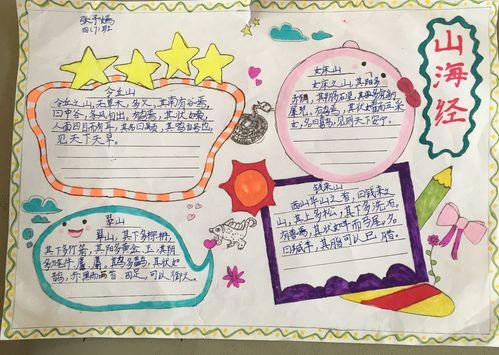 张予嫣
四(1)班
山海经
令丘山
令丘之山,无草木,多火,其南有谷焉,
曰中谷,条风自出,有鸟焉,其状如枭,
人面四目而有耳,其名曰颙,其鸣自号也,
见天下大旱。
女床山
女床之山,其阳多
赤铜,其阴多石涅,其兽多虎豹
犀兕。有鸟焉,其状如翟而五采
文,名曰鸾鸟,见则天下安宁。
翠山
翠山,其上多棕枬,
其下多竹箭,其阳多黄金、玉,其阴
多旄牛、麢、麝。其鸟多鸓,其状如
鹊,赤黑而两首、四足,可以御火。
钱来山
西山华山之首,曰钱来之
山,其上多松,其下多洗石。
有兽焉,其状如羊而马尾,名
曰羬羊,其脂可以已腊。